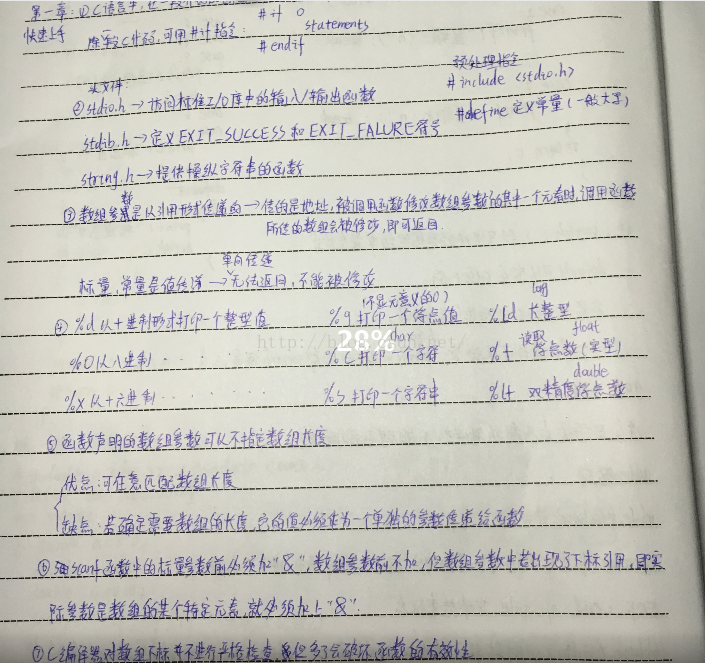 第一章: ① C语言中,
快速上手
#if 0
statements
#endif
可用#if指令:
头文件:
预处理指令
② stdio.h → 访问标准I/O库中的输入/输出函数
#include <stdio.h>
stdlib.h → 定义EXIT_SUCCESS和EXIT_FALURE符号
#define 定义常量(一般大写)
string.h → 提供操纵字符串的函数
③ 数组参数是以引用形式传递的一传的是地址,被调用函数修改数组参数的其中一个元素时,调用函数
所传的数组会被修改,即可返回.
单向传递
标量,常量是值传递 → 无法返回,不能被修改
(不显无意义的0) long
④ %d 以十进制形式打印一个整型值 %g 打印一个浮点值 %ld 长整型
char 读取 float
%o 以八进制 · · · · %c 打印一个字符 %f 浮点数(实型)
double
%x 以十六进制 · · · · · · · %s 打印一个字符串 %lf 双精度浮点数
28%
⑤ 函数声明的数组参数可以不指定数组长度
优点: 可任意匹配数组长度
缺点: 若确定需要数组的长度,它的值必须作为一个单独的参数传递给函数
⑥ scanf函数中的标量参数前必须加"&",数组参数前不加,但数组参数中若出现了下标引用,即实
际参数是数组的某个特定元素,就必须加上"&".
⑦ C编译器对数组下标并不进行严格检查, 函数的有效性